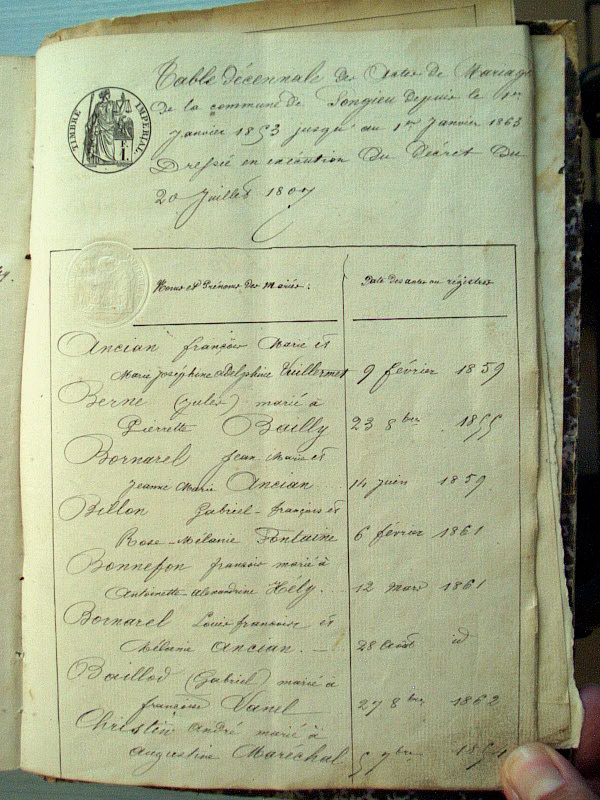 Table décennale des Actes de Mariage
de la commune de Songieu depuis le 1er
janvier 1853 jusqu'au 1er Janvier 1863
Dressée en exécution du Décret du
20 Juillet 1807
TIMBRE IMPÉRIAL
1 F.
Noms et Prénoms des Mariés. Date des actes au régistre
Ancian françois Marie et
Marie Joséphine Adelphine Vuillermet 9 février 1859
Berne (jules) marié à
Pierrette Bailly 23 8bre 1855
Bornarel Jean Marie et
Jeanne Marie Ancian 14 juin 1859
Billon Gabriel-françois et
Rose-Mélanie Fontaine 6 février 1861
Bonnefon françois marié à
Antoinette Alexandrine Hely. 12 mars 1861
Bornarel Louis françois et
Mélanie Ancian. 28 Août id
Baillod (Gabriel) marié à
françoise Vanel 27 8bre 1862
Christin André marié à
Augustine Maréchal 5 9bre